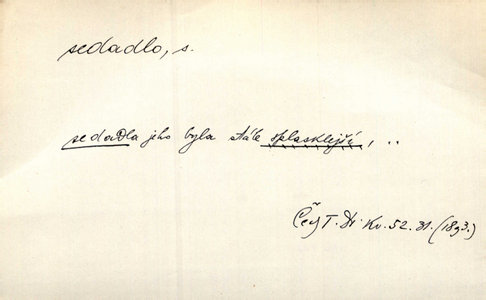 sedadlo, s.
sedadla jeho byla stále splasklejší, ..
Čech T. Dr. Kv. 52. 31. (1893.)